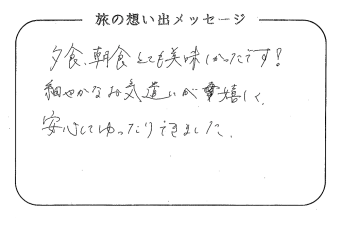 旅の想い出メッセージ
夕食、朝食とても美味しかったです!
細やかなお気遣いが嬉しく、
安心してゆったりできました。